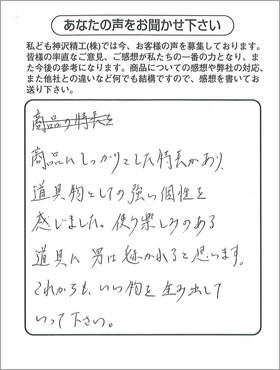 あなたの声をお聞かせ下さい
私ども神沢精工(株)では今、お客様の声を募集しております。
皆様の率直なご意見、ご感想が私たちの一番の力となり、ま
た今後の参考になります。商品についての感想や弊社の対応、
また他社との違いなど何でも結構ですので、感想を書いてお
送り下さい。
商品の特長を
商品にしっかりとした特長があり、
道具物としての強い個性を
感じました。使う楽しみのある
道具に男は惹かれると思います。
これからも、いい物を生み出して
いって下さい。